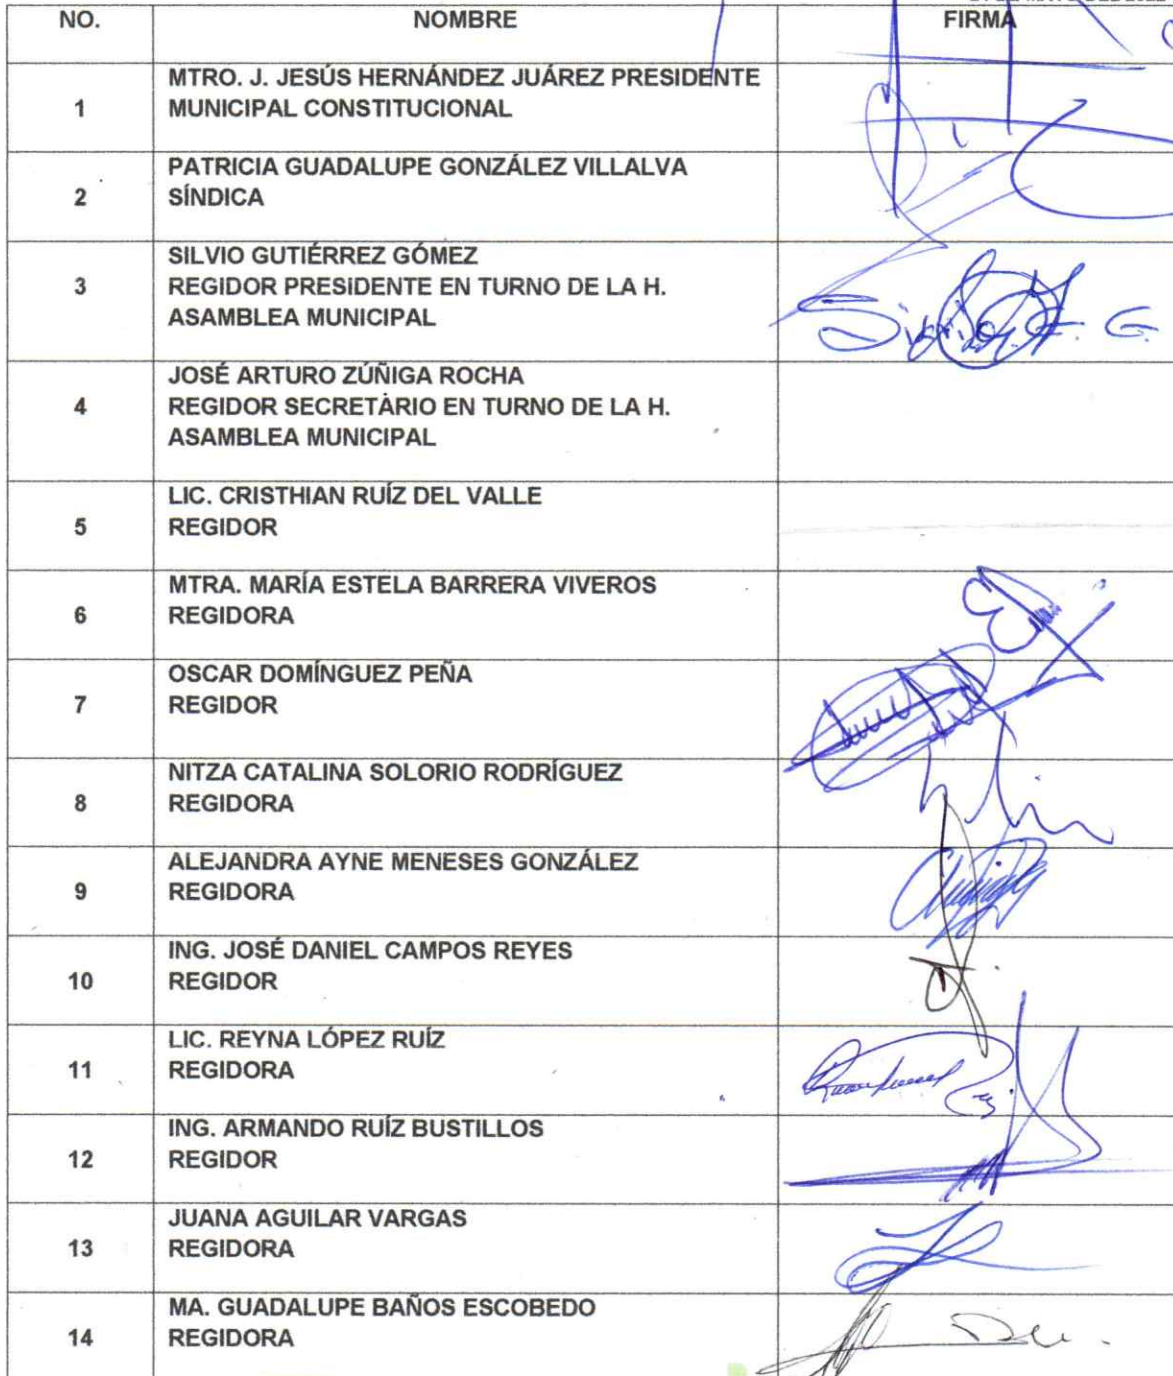 NO. NOMBRE FIRMA
1 MTRO. J. JESÚS HERNÁNDEZ JUÁREZ PRESIDENTE
MUNICIPAL CONSTITUCIONAL
2 PATRICIA GUADALUPE GONZÁLEZ VILLALVA
SÍNDICA
3 SILVIO GUTIÉRREZ GÓMEZ
REGIDOR PRESIDENTE EN TURNO DE LA H.
ASAMBLEA MUNICIPAL
4 JOSÉ ARTURO ZÚÑIGA ROCHA
REGIDOR SECRETARIO EN TURNO DE LA H.
ASAMBLEA MUNICIPAL
5 LIC. CRISTHIAN RUÍZ DEL VALLE
REGIDOR
6 MTRA. MARÍA ESTELA BARRERA VIVEROS
REGIDORA
7 OSCAR DOMÍNGUEZ PEÑA
REGIDOR
8 NITZA CATALINA SOLORIO RODRÍGUEZ
REGIDORA
9 ALEJANDRA AYNE MENESES GONZÁLEZ
REGIDORA
10 ING. JOSÉ DANIEL CAMPOS REYES
REGIDOR
11 LIC. REYNA LÓPEZ RUÍZ
REGIDORA
12 ING. ARMANDO RUÍZ BUSTILLOS
REGIDOR
13 JUANA AGUILAR VARGAS
REGIDORA
14 MA. GUADALUPE BAÑOS ESCOBEDO
REGIDORA